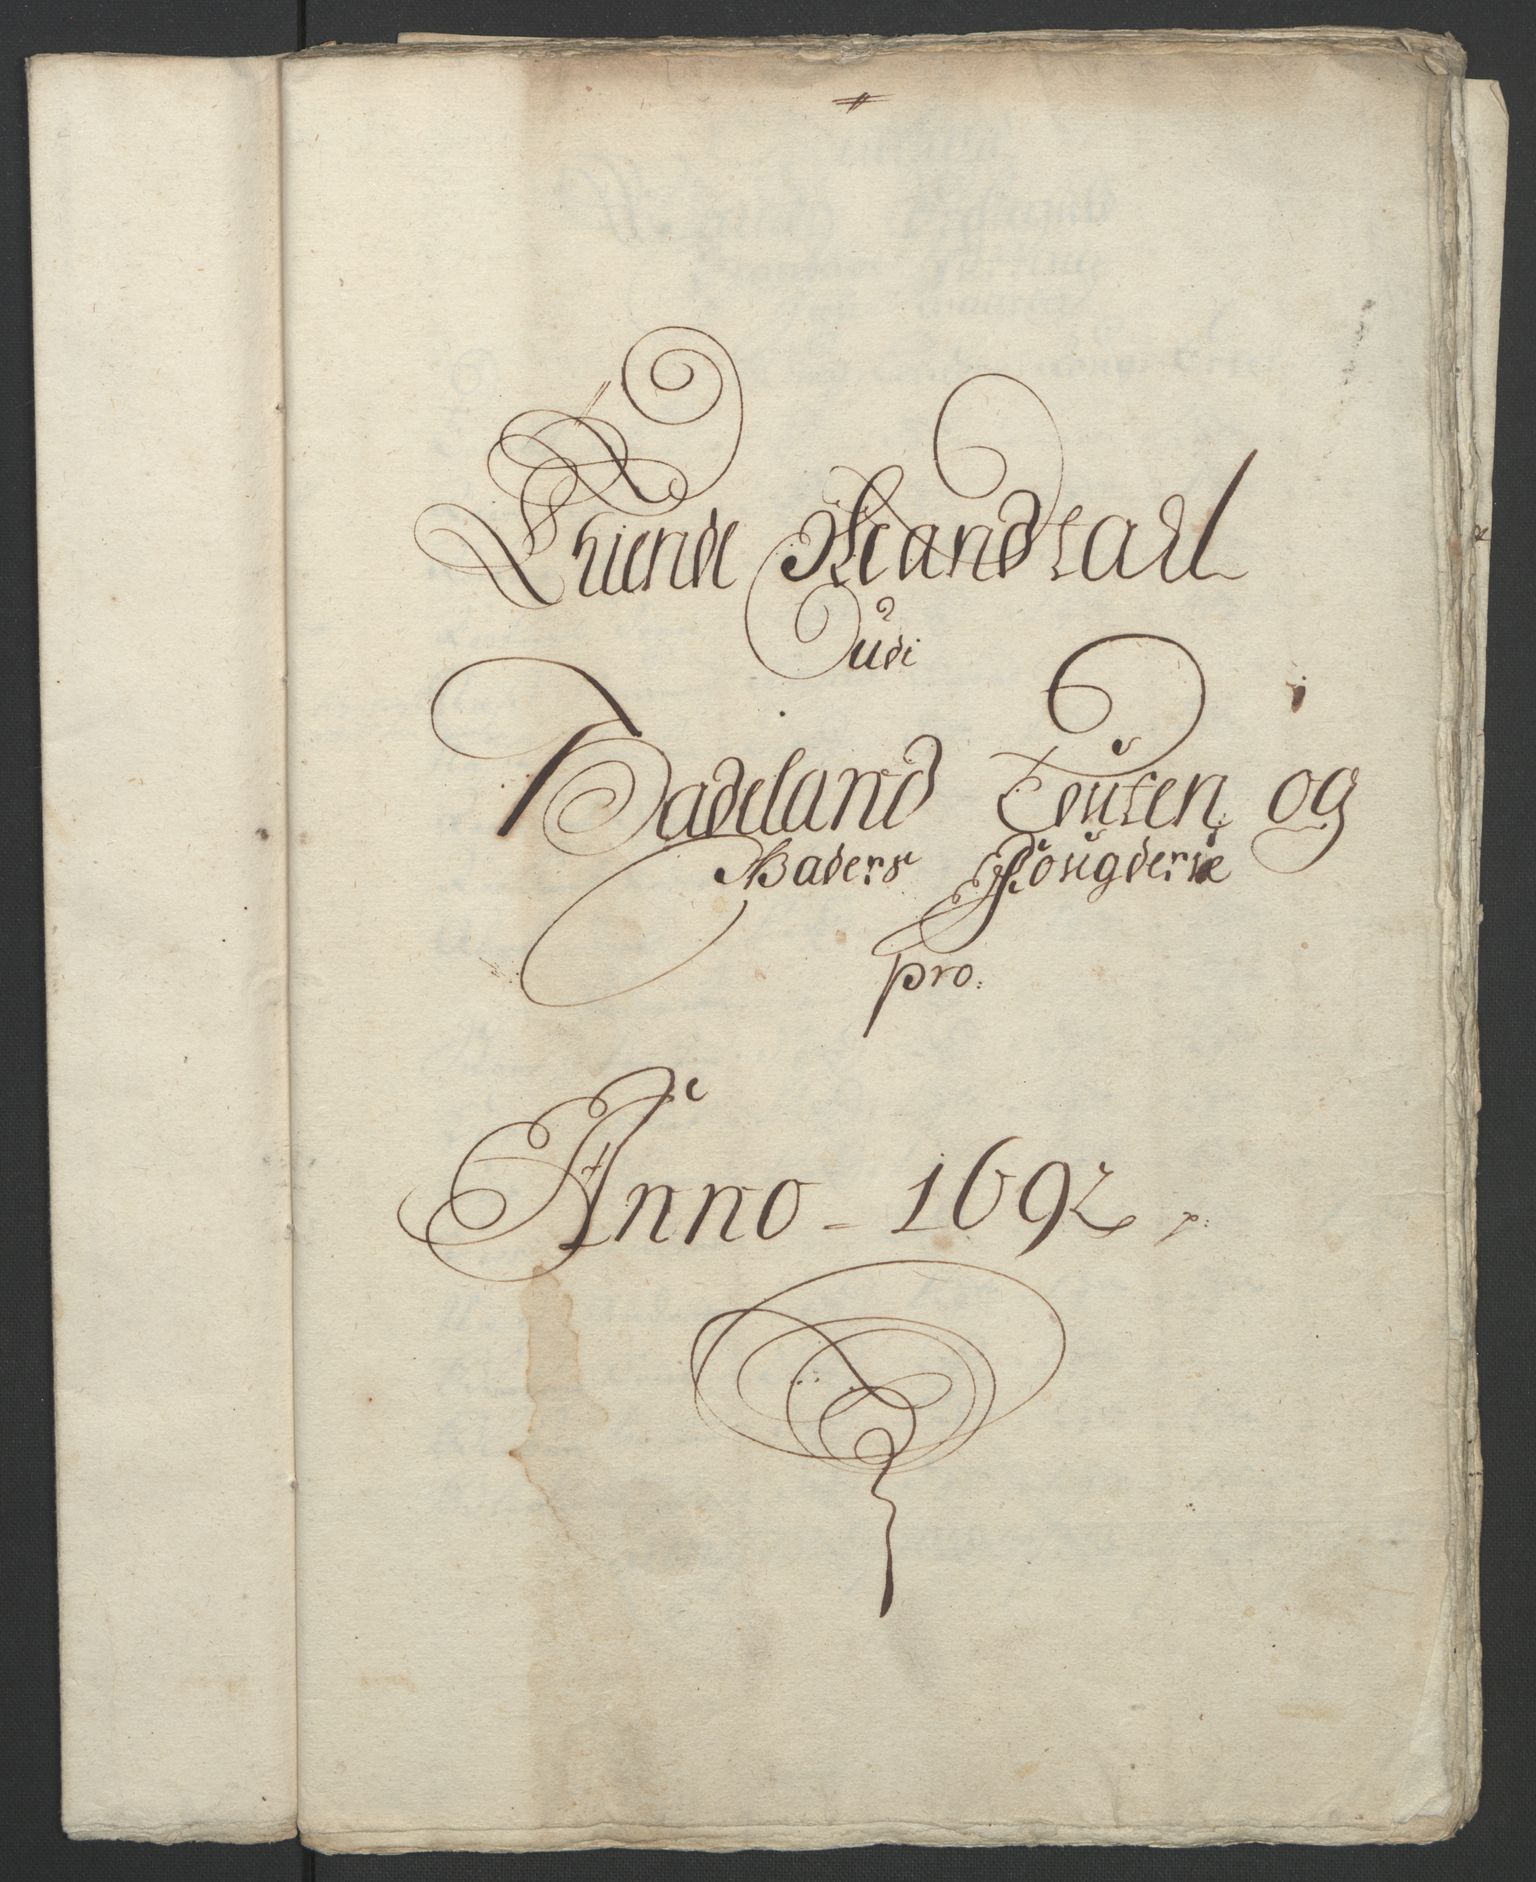 Thiende Mandtall
udi
Hadeland Toten og
Walders Fougderie
pro:
Anno - 1692